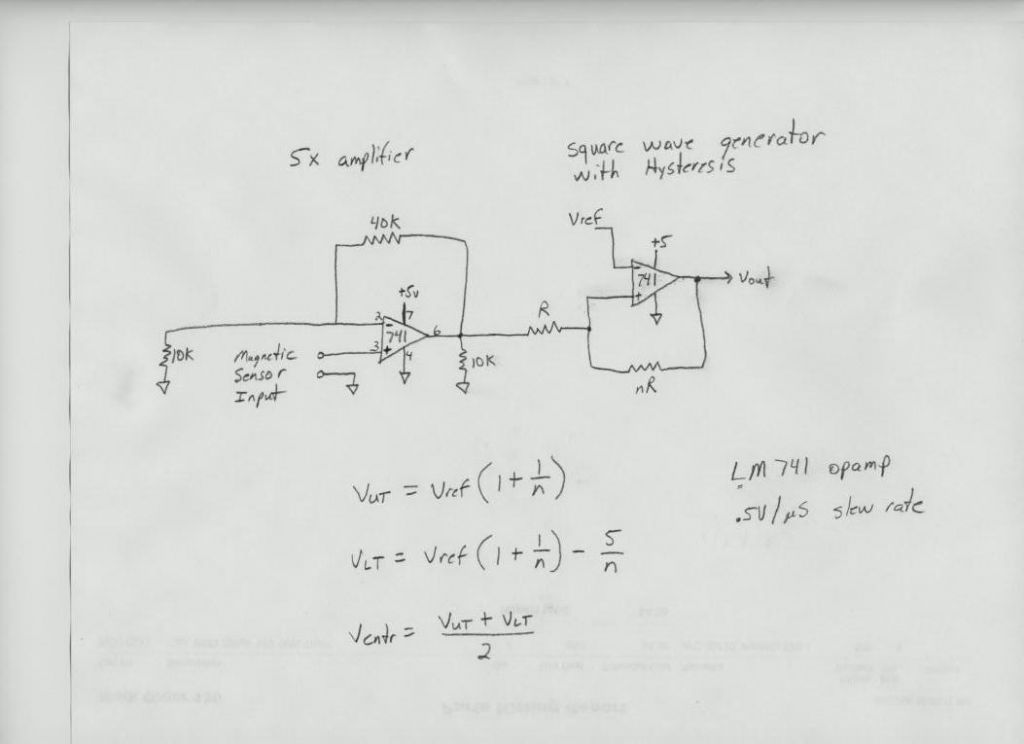 5x amplifier
square wave generator
with Hysteresis
Vref
40K
+5
741
-
+
Vout
+5v
2
-
7
741
6
3
+
4
R
10K
Magnetic
Sensor
Input
10K
nR
VUT = Vref (1 + 1/n)
VLT = Vref (1 + 1/n) - 5/n
Ventr = VUT + VLT / 2
LM741 opamp
.5V/µS slew rate